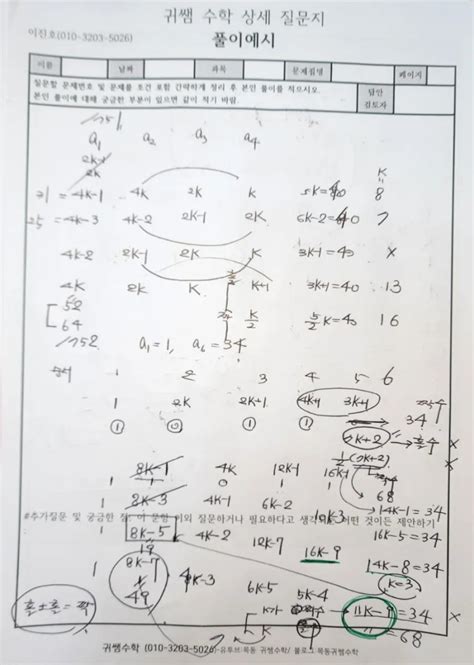 귀쌤 수학 상세 질문지
이진호(010-3203-5026)
풀이예시
이름 날짜 과목 문제집명 페이지
질문할 문제번호 및 문제를 조건 포함 간략하게 정리 후 본인 풀이를 적으시오.
본인 풀이에 대해 궁금한 부분이 있으면 같이 적기 바람.
답안
검토자
a₁ a₂ a₃ a₄
K
31 = 4K-1 4K 2K K 5K=40 8
25 = 4K-3 4K-2 2K-1 2K 6K-2=40 7
4K-2 2K-1 2K K 3K-1=40 ×
4K 2K K K+1 3K+1=40 13
52
64
K/2 5/2 K=40 16
a₁=1, a₆=34
1 2 3 4 5 6
1 2K 2K+1 4K+1 3K+1 34 ×
① ⓪ ① ①
7K+2 → 홀수 ×
1/2(7K+2)
8K-1 4K 12K-1 16K-1
1 1 0 1 0 68
14K-1=34
1 8K-3 4K-1 6K-2 10K-3
#추가질문 및 궁금한 점: 이 문항 이외 질문하거나 필요하다고 생각되는 어떤 것이든 제안하기
1 8K-5 4K-2 12K-7 16K-9 16K-5=34
19 14K-8=34
1 8K-7 4K-3 6K-5 5K-4 K=3
49
홀±홀=짝
K가 11K-9=34 ×
K 68
귀쌤수학 (010-3203-5026)-유투브:목동 귀쌤수학/ 블로그:목동귀쌤수학